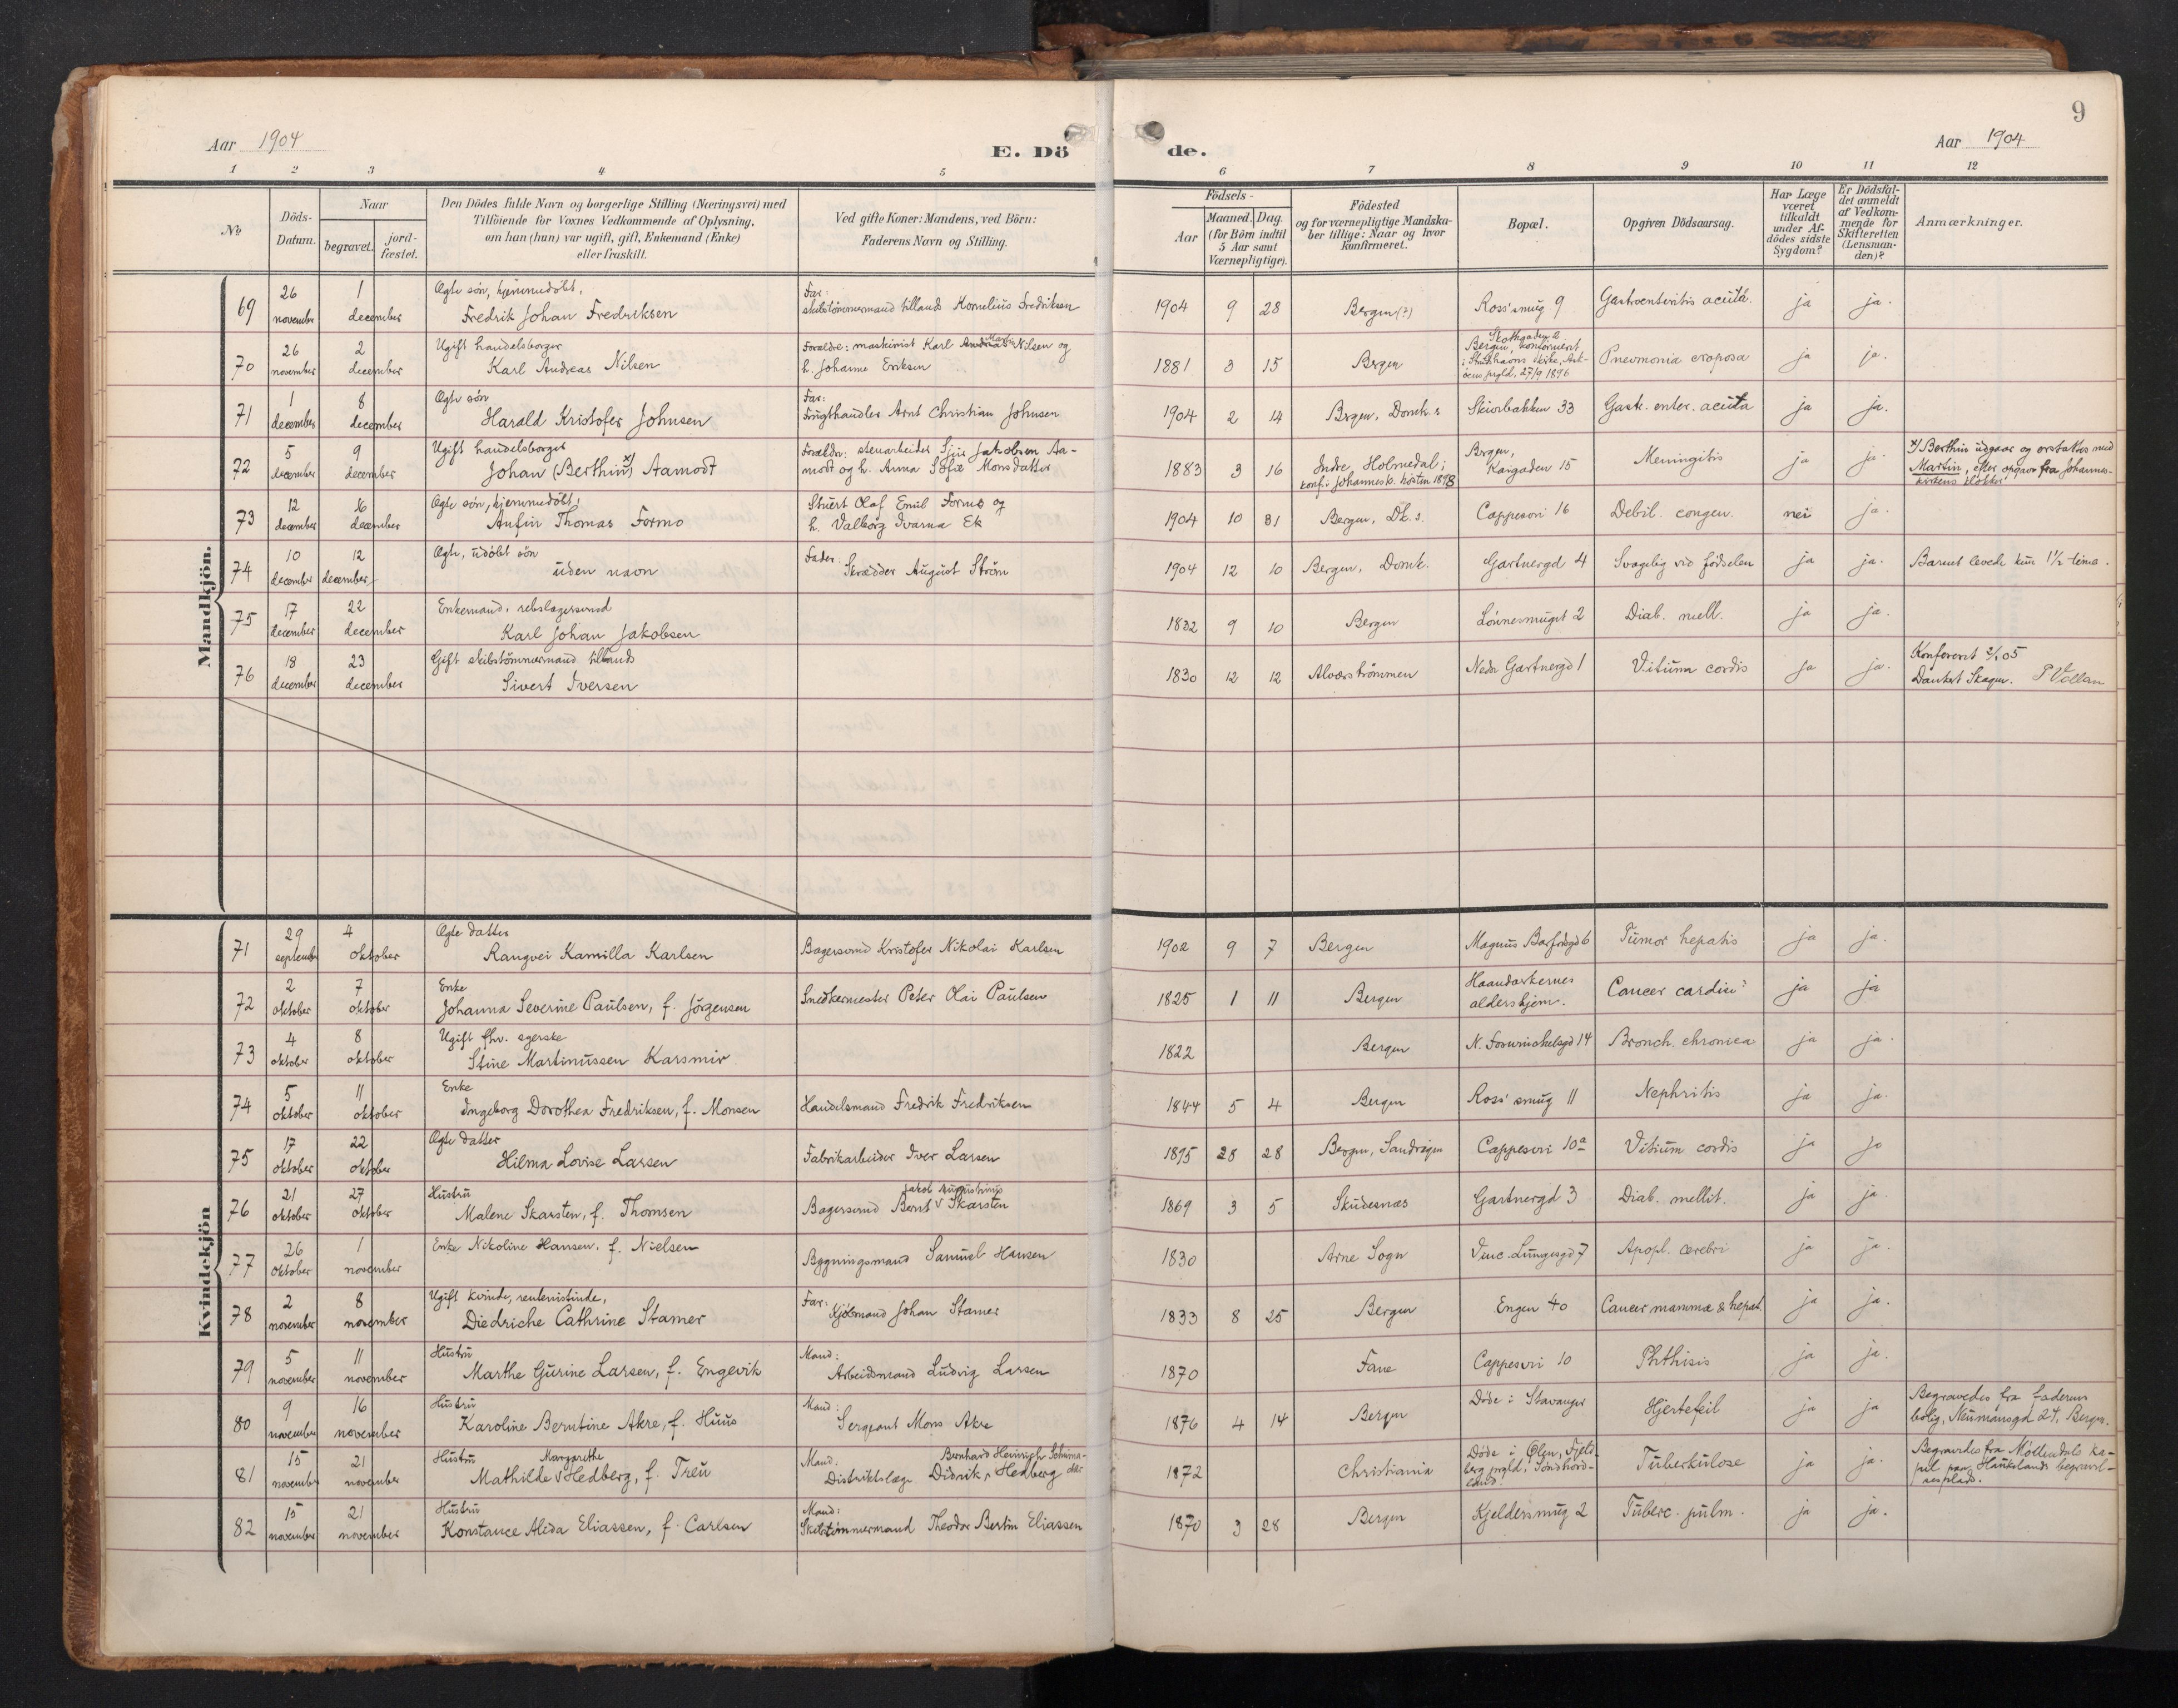 9
Aar 1904
E. Dö de.
Aar 1904
1 2 3 4 5 6 7 8 9 10 11 12
No.
Döds-
Datum.
Naar
begravet.
jord-
fæstet.
Den Dödes fulde Navn og borgerlige Stilling (Næringsvei) med
Tilföiende for Voxnes Vedkommende af Oplysning,
om han (hun) var ugift, gift, Enkemand (Enke)
eller fraskilt.
Ved gifte Koner: Mandens, ved Börn:
Faderens Navn og Stilling.
Födsels-
Aar
Maaned. Dag.
(for Börn indtil
5 Aar samt
Værnepligtige).
Födested
og for værnepligtige Mandska-
ber tillige: Naar og hvor
konfirmeret.
Bopæl.
Opgiven Dödsaarsag.
Har Læge
været
tilkaldt
under Af-
dödes sidste
Sygdom?
Er Dödsfal-
det anmeldt
af Vedkom-
mende for
Skifteretten
(Lensman-
den)?
Anmærkninger.
Mandkjön.
69 26 november 1 december Ægte sön, hjemmedöbt,
Fredrik Johan Fredriksen
Far:
skibstömmermand tillands Kornelius Fredriksen
1904 9 28 Bergen (?) Ross' smug 9 Gastroenteritis acuta. ja ja.
70 26 november 2 december Ugift handelsborger
Karl Andreas Nilsen
Forældre: maskinist Karl Andreas Martin Nilsen og
h. Johanne Eriksen
1881 3 15 Bergen
Skottegaden 2
Bergen, konfirmeret
kirke, Ask-
öens prgld, 27/9 1896
Pneumonia croposa ja ja.
71 1 december 8 december Ægte sön
Harald Kristofer Johnsen
Far:
Frugthandler Arnt Christian Johnsen
1904 2 14 Bergen, Domk. s Skivebakken 33 Gastr. enter. acuta ja ja.
72 5 december 9 december Ugift handelsborger
Johan (Berthin x)) Aamodt
Forældre: stenarbeider Sjur Jakobsen Aa-
modt og h. Anna Sofie Monsdatter
1883 3 16 Indre Holmedal;
konf. i Johannesk. hösten 1898
Bergen,
Kaigaden 15
Meningitis ja ja
x) Berthin udgaar og erstattes med
Martin, efter opgave fra Johannes-
kirkens klokker
73 12 december 16 december Ægte sön, hjemmedöbt,
Anfin Thomas Formo
Stuert Olaf Emil Formo og
h. Valborg Ivarna Ek
1904 10 31 Bergen, Dk. s. Cappesvei 16 Debil. congen. nei ja.
74 10 december 12 december Ægte, udöbt sön
uden navn
Fader:
Skrædder August Ström
1904 12 10 Bergen, Domk. Gartnergd 4 Svagelig ved födselen ja ja. Barnet levede kun 1 1/2 time.
75 17 december 22 december Enkemand, rebslagersvend
Karl Johan Jakobsen
1832 9 10 Bergen 2 Diab. mell. ja ja.
76 18 december 23 december Gift skibstömmermand tillands
Sivert Iversen
1830 12 12 Alverströmmen Nedr Gartnergd 1 Vitium cordis ja ja.
Konfereret 2/1 05
Dankert Skagen. P Vollan
Kvindekjön
71 29 september 4 oktober Ægte datter
Rangvei Kamilla Karlsen
Bagersvend Kristofer Nikolai Karlsen
1902 9 7 Bergen Magnus Barfodsgd 6 Tumor hepatis ja ja.
72 2 oktober 7 oktober Enke
Johanna Severine Paulsen, f. Jörgensen
Snedkermester Peter Olai Paulsen
1825 1 11 Bergen
Haandverkernes
aldershjem.
Cancer cardiæ? ja ja
73 4 oktober 8 oktober Ugift fhv. syerske
Stine Martinussen Karsmiv
1822 Bergen 14 Bronch. chronica ja ja.
74 5 oktober 11 oktober Enke
Ingeborg Dorothea Fredriksen, f. Monsen
Handelsmand Fredrik Fredriksen
1844 5 4 Bergen Ross' smug 11 Nephritis ja ja.
75 17 oktober 22 oktober Ægte datter
Hilma Lovise Larsen
Fabrikarbeider Iver Larsen
1895 28 28 Bergen, Sandvigen Cappesvei 10a Vitium cordis ja ja
76 21 oktober 27 oktober Hustru
Malene Skarsten, f. Thomsen
Jakob Augustinus
Bagersvend Bernt Skarsten
1869 3 5 Skudesnæs Gartnergd 3 Diab. mellit. ja ja.
77 26 oktober 1 november Enke Nikoline Hansen, f. Nielsen
Bygningsmand Samuel Hansen
1830 Arne Sogn Vinc. Lungesgd 7 Apopl. cerebri ja ja.
78 2 november 8 november Ugift kvinde, rentenistinde,
Diedriche Cathrine Stamer
Far:
Kjöbmand Johan Stamer
1833 8 25 Bergen Engen 40 Cancer mammæ & hepat. ja ja.
79 5 november 11 november Hustru
Marthe Gurine Larsen, f. Engevik
Mand:
Arbeidsmand Ludvig Larsen
1870 Fane Cappesvei 10 Phthisis ja ja.
80 9 november 16 november Hustru
Karoline Berntine Akre, f. Huus
Mand:
Sergeant Mons Akre
1876 4 14 Bergen Döde i Stavanger Hjertefeil ja ja
Begravedes fra faderens
bolig, Neumansgd 24, Bergen.
81 15 november 21 november Hustru Margarethe
Mathilde Hedberg, f. Treu
Mand: Bernhard Heinrich
Distriktslæge Didrik Hedberg
1872 Christiania
Döde i Ölen, Fjeld-
berg prgld, Söndhord-
land.
Tuberkulose ja ja.
Begravedes fra Möllendals ka-
pel paa Haukelands begravel-
sesplads.
82 15 november 21 november Hustru
Konstance Alida Eliassen, f. Carlsen
Mand:
Skibstömmermand Theodor Bertin Eliassen
1870 3 28 Bergen Kjeldersmug 2 Tuberc. pulm. ja ja.